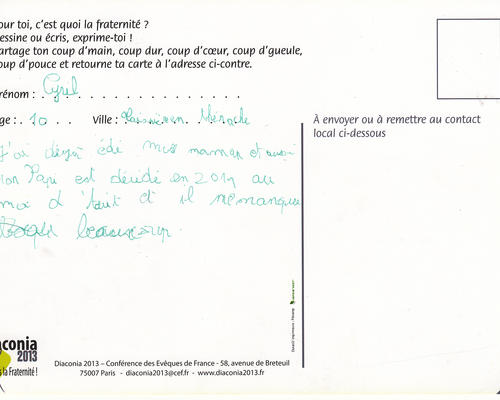 our toi, c'est quoi la fraternité ?
essine ou écris, exprime-toi !
artage ton coup d'main, coup dur, coup d'cœur, coup d'gueule,
oup d'pouce et retourne ta carte à l'adresse ci-contre.
rénom : Cyril
ge : 10 Ville :
À envoyer ou à remettre au contact
local ci-dessous
J'ai déjà édé mes maman et aussi
mon Papi est décidé en 2011 au
moi d'aout et il me manque
beaucoup
aconia
2013
la Fraternité !
Diaconia 2013 – Conférence des Evêques de France - 58, avenue de Breteuil
75007 Paris - diaconia2013@cef.fr - www.diaconia2013.fr